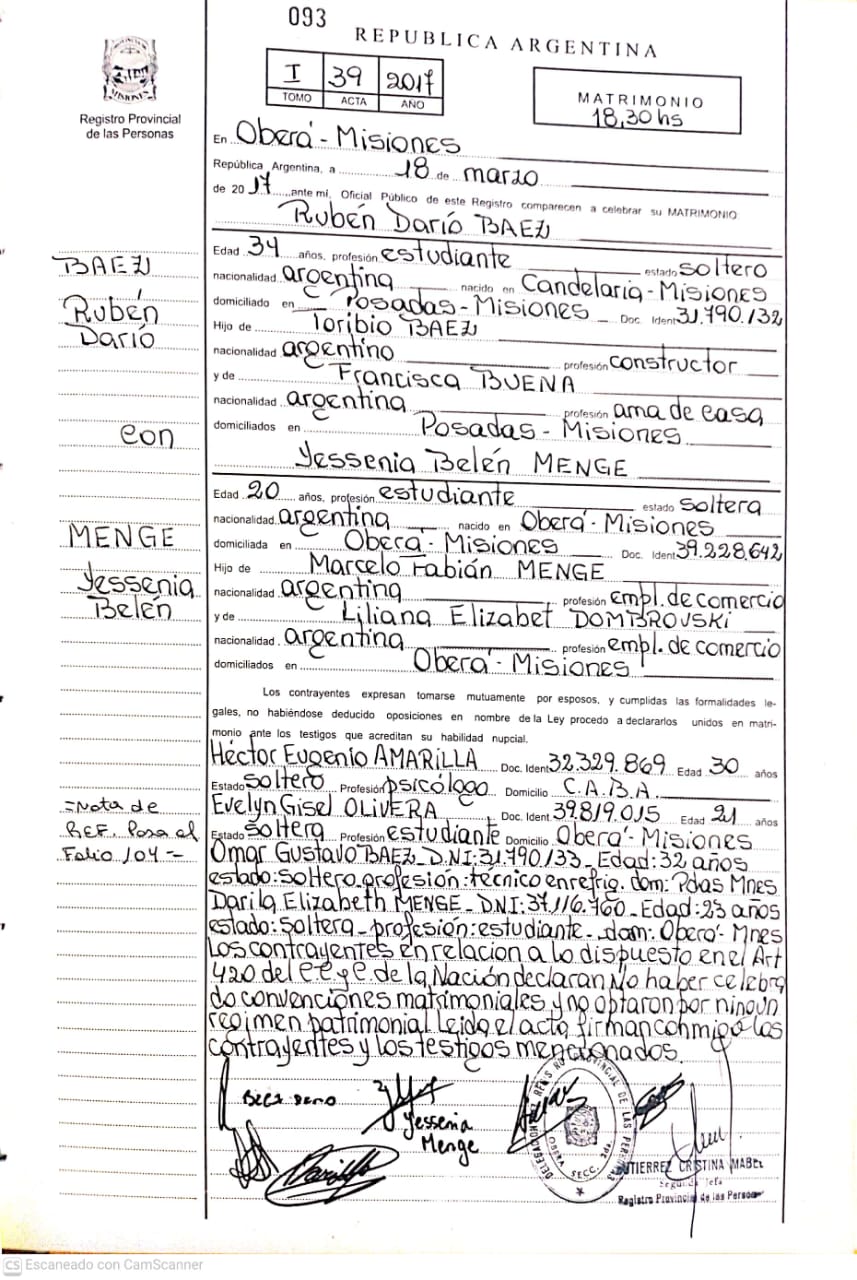 093
REPUBLICA ARGENTINA
MISIONES
Registro Provincial
de las Personas
I 39 2017
TOMO ACTA AÑO
MATRIMONIO
18,30 hs
En Oberá - Misiones
República Argentina, a 18 de marzo
de 2017 ante mi, Oficial Público de este Registro comparecen a celebrar su MATRIMONIO
Rubén Darío BAEZ
Edad 34 años, profesión estudiante estado soltero
nacionalidad argentina nacido en Candelaria - Misiones
domiciliado en Posadas - Misiones Doc. Ident 31.790.132
Hijo de Toribio BAEZ
nacionalidad argentino profesión constructor
y de Francisca BUENA
nacionalidad argentina profesión ama de casa
domiciliados en Posadas - Misiones
Yessenia Belén MENGE
Edad 20 años, profesión estudiante estado soltera
nacionalidad argentina nacido en Oberá - Misiones
domiciliada en Oberá - Misiones Doc. Ident 39.228.642
Hijo de Marcelo Fabián MENGE
nacionalidad argentina profesión empl. de comercio
y de Liliana Elizabet DOMBROVSKI
nacionalidad argentina profesión empl. de comercio
domiciliados en Oberá - Misiones
Los contrayentes expresan tomarse mutuamente por esposos, y cumplidas las formalidades le-
gales, no habiéndose deducido oposiciones en nombre de la Ley procedo a declararlos unidos en matri-
monio ante los testigos que acreditan su habilidad nupcial.
Héctor Eugenio AMARILLA Doc. Ident 32.329.869 Edad 30 años
Estado soltero Profesión psicólogo Domicilio C.A.B.A.
Evelyn Gisel OLIVERA Doc. Ident 39.819.015 Edad 21 años
Estado soltera Profesión estudiante Domicilio Oberá - Misiones
Omar Gustavo BAEZ_D.NI:31.790.133_Edad:32 años
estado:soltero.profesión:técnico enrefrig. dom: Pdas Mnes
Darila Elizabeth MENGE_DNI:37.116.760_Edad:23 años
estado:soltera_profesión:estudiante_dom: Oberá- Mnes
Los contrayentes en relacion a lo dispuesto en el Art
420 del C.C.y C. de la Nación declaran No haber celebra
do convenciones matrimoniales y no optaron por ningun
regimen patrimonial. Leida el acta firman conmigo los
contrayentes y los testigos mencionados.
BAEZ
Rubén
Darío
con
MENGE
Yessenia
Belén
=Nota de
REF. Pasa al
Folio 104=
Baez Dario
Yessenia
Menge
REGISTRO PROVINCIAL DE LAS PERSONAS
OBERA SECC.
GUTIERREZ CRISTINA MABEL
Segunda Jefa
Registro Provincial de las Personas
CS Escaneado con CamScanner